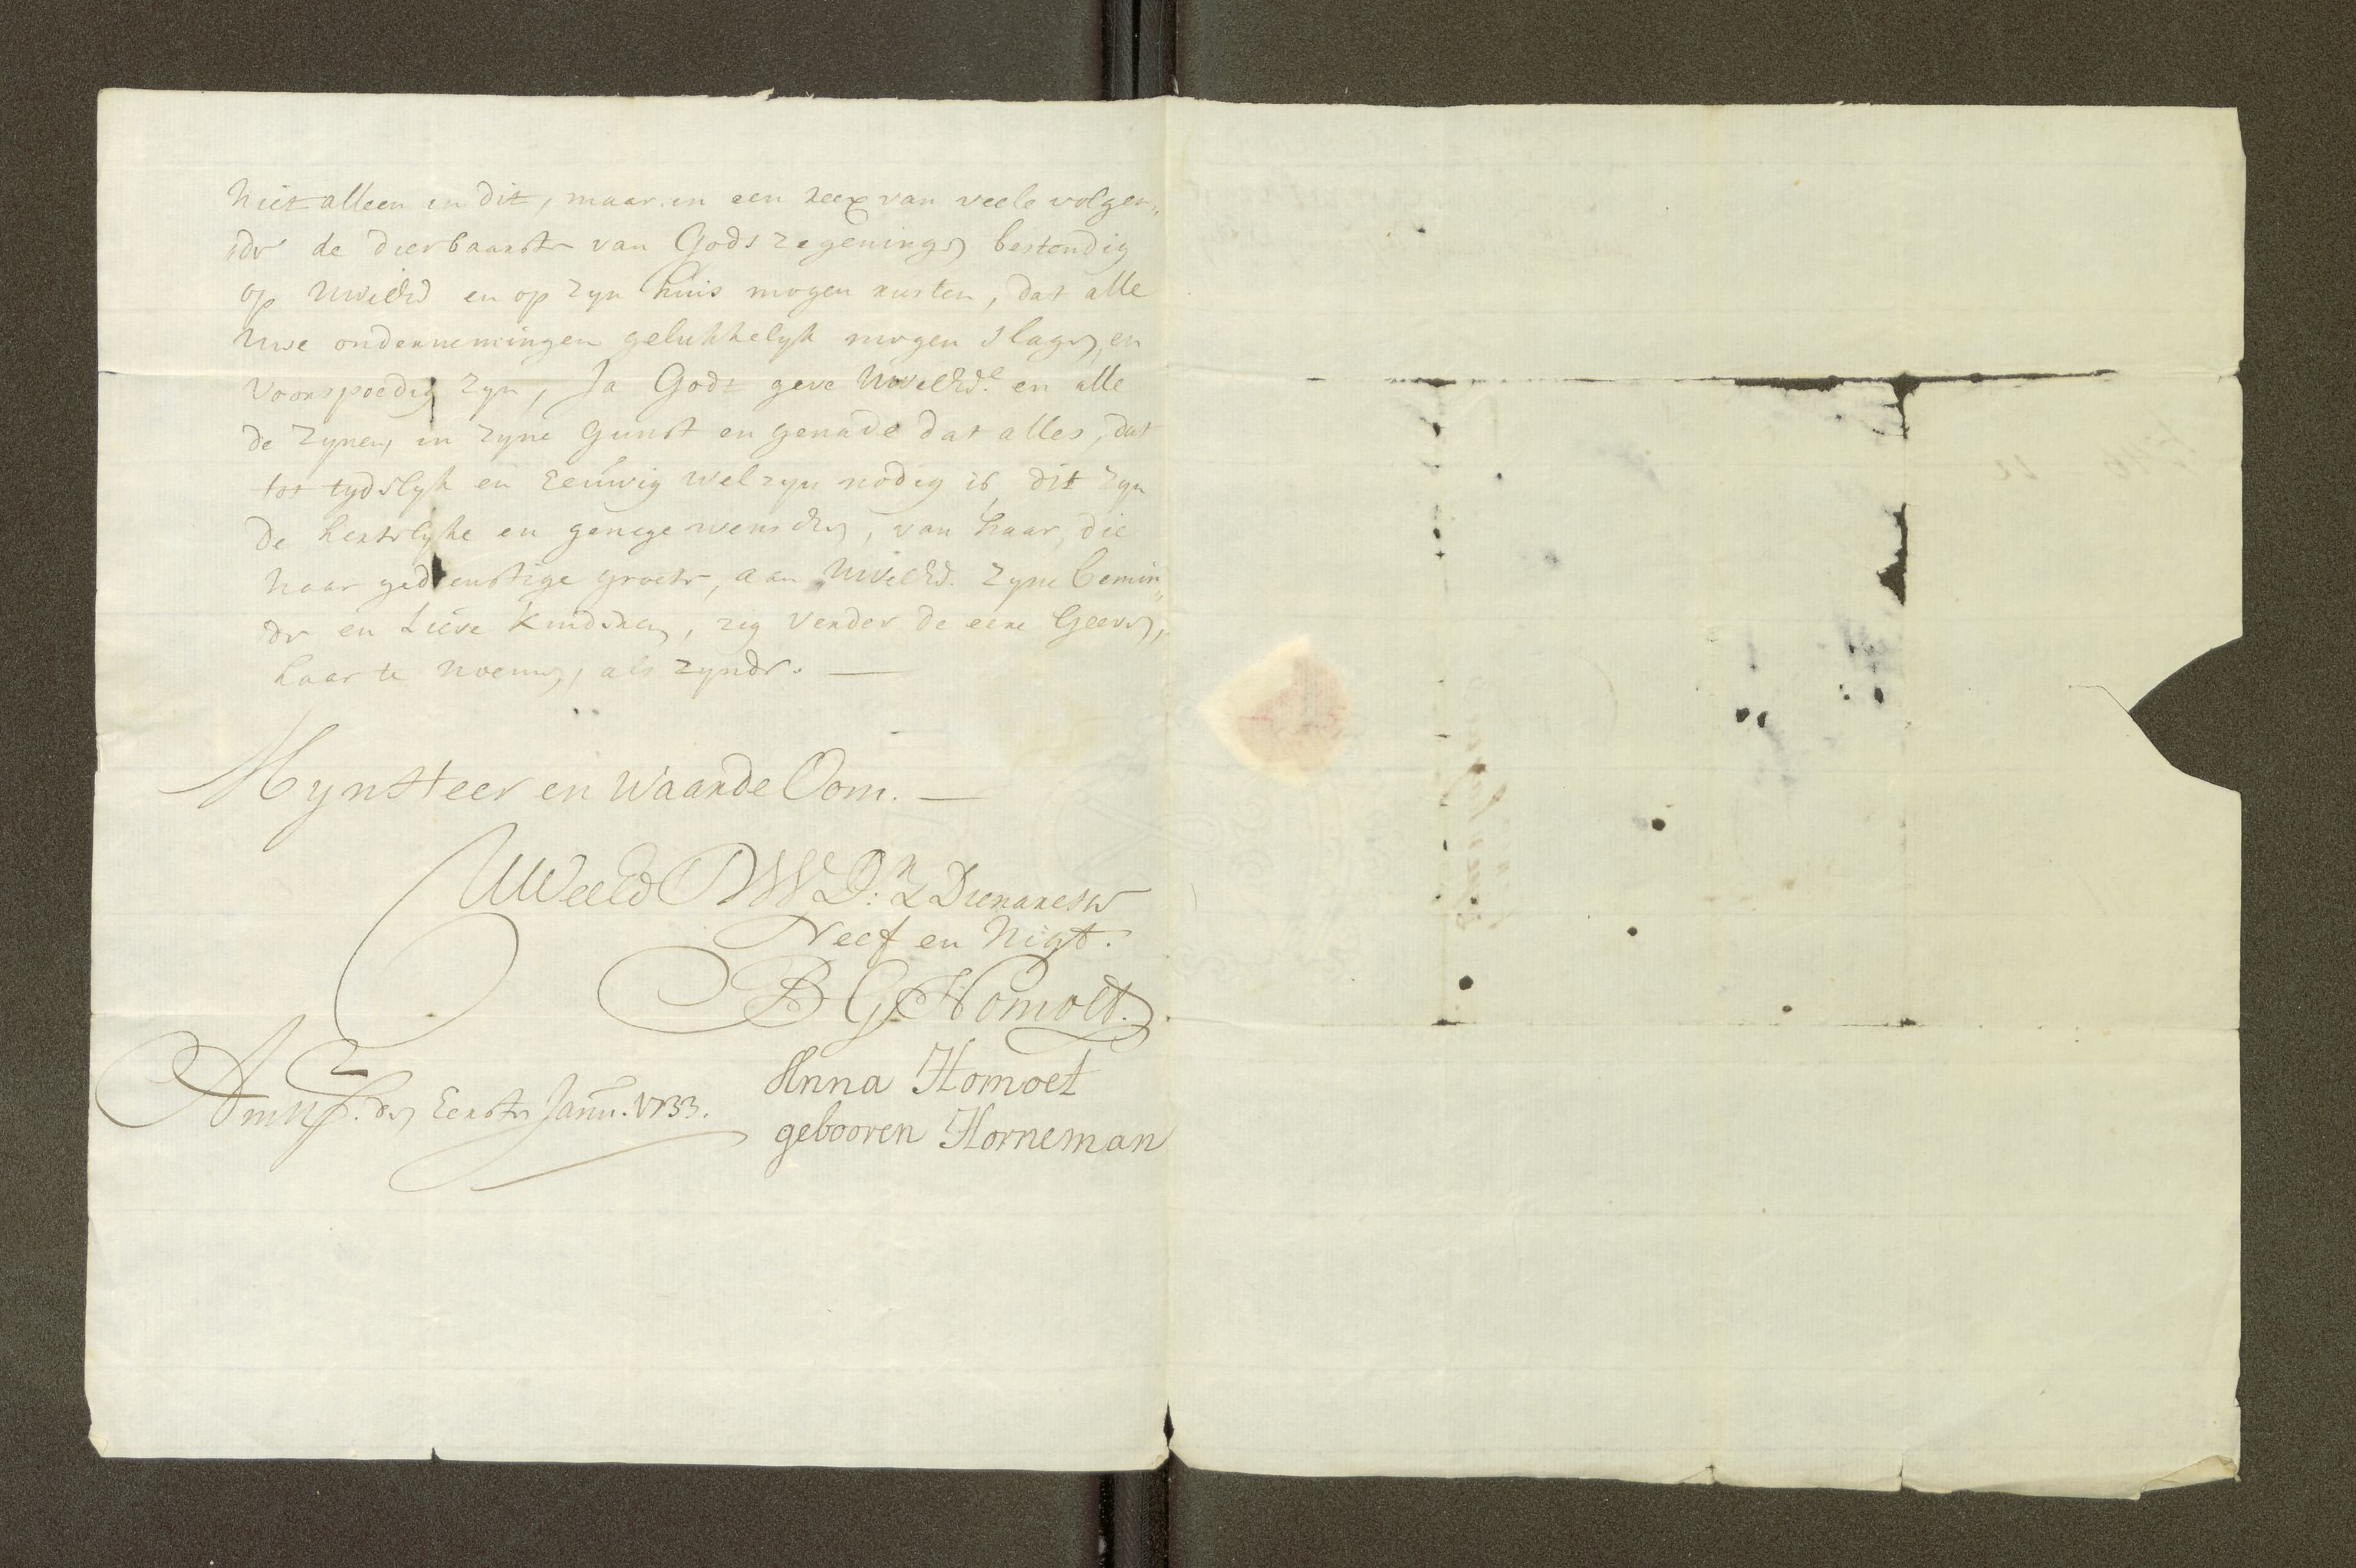 niet alleen in dit, maar in een reex van veele volgen„
de dierbaarste van Gods zegeningen bestendig
op UWelEd en op zyn huis mogen rusten, dat alle
Uwe ondernemingen gelukkelyk mogen slagen, en
voorspoedig zyn, Ja Godt geve UWelEd.e en alle
de Zynen, in zyne gunst en genade dat alles, dat
tot tydslyk en Eeuwig welzyn nodig is, dit zyn
de hertelyke en genege wenschen, van haar, die
haar gedienstige groete, aan UWelEd. zyne bemin„
de en Lieve Kinderen, zig verder de eere geeven,
haar te noemen, als zynde. —
Myn Heer en Waarde Oom. —
UWelEd DWD: Dienaresse
Neef en Nigt.
B G Homoet.
Anna Homoet
geboren Horneman
Amst. den Eersten Janu. 1733.